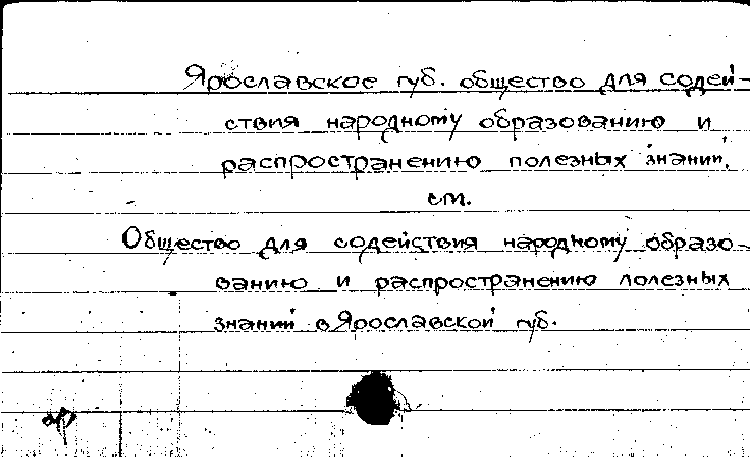 Ярославское губ. общество для содей-
ствия народному образованию и
распространению полезных знаний,
см.
Общество для содействия народному образо-
ванию и распространению полезных
знаний в Ярославской губ.